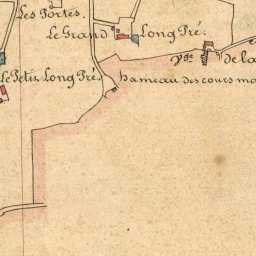 Les Portes.
le Grand Long Pré.
de la
Le Petit Long Pré,
hameau des cours